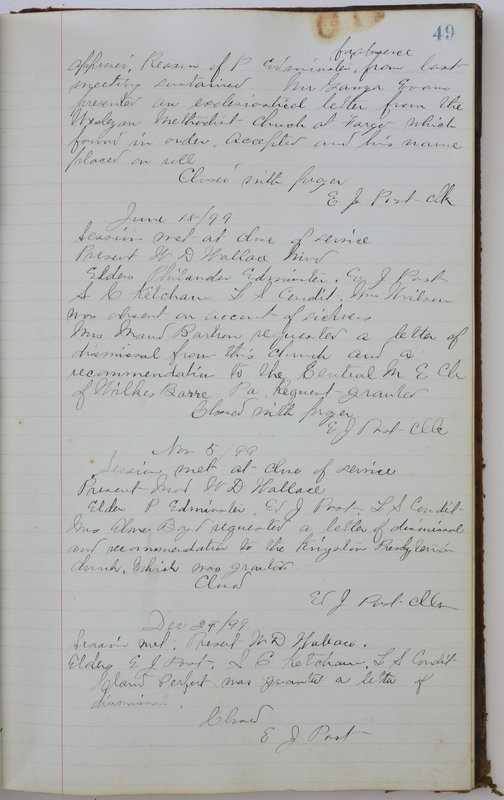 49
for absence
approved. Reason of P Edminster, from last
meeting sustained Mr Evans
presented an ecclesiastical letter from the
Wesleyan Methodist church at Fargo which
found in order, accepted and his name
placed on roll
Closed with prayer
E J Post clk
June 18/99
Session met at close of service
Present W D Wallace Mod
Elders Philander Edminster. Ed J Post
S C Ketcham L S Condit. Wm Wilson
was absent on account of sickness
Mrs Maud requested a letter of
dismissal from this church and a
recommendatin to the Central M E Ch
of Wilkes Barre Pa Request granted
Closed with prayer
E J Post clk
Nov 5/99
Session met at close of service
Present Mod W D Wallace
Elders P Edminster, Ed J Post, L S Condit
Mrs Boyd requested a letter of dismissal
and recommendation to the Kingston Presbyterian
church, which was granted
Closed
Ed J Post clk
Dec 29/99
Session met. Present W D Wallace.
Elders E J Post, S C Ketcham, L S Condit
was granted a letter of
dismissal.
Closed
E J Post